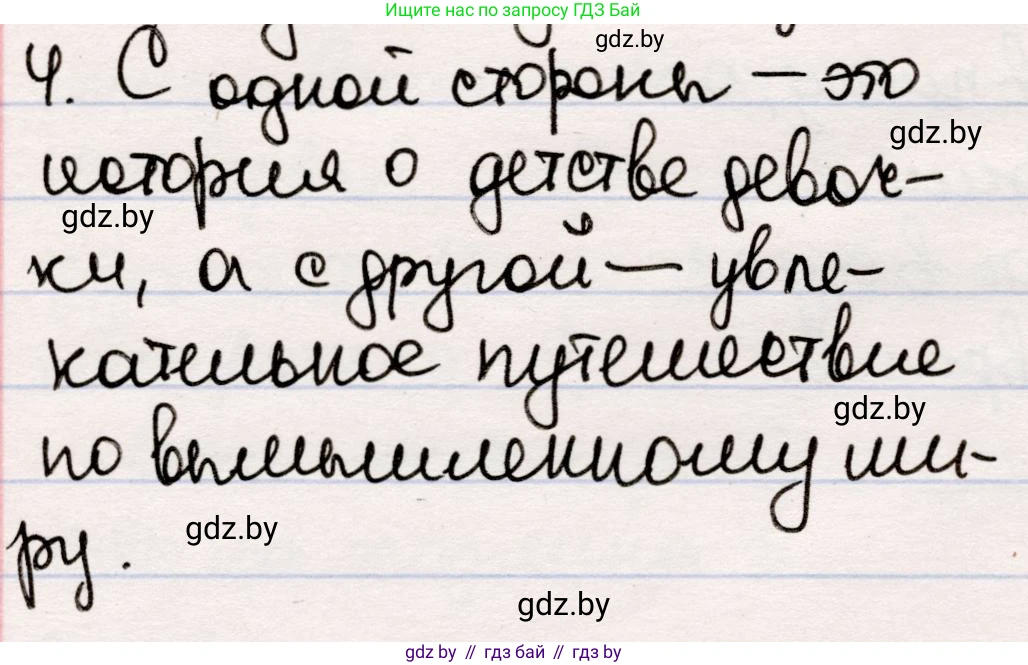 Ищите нас по запросу ГДЗ Бай
gdz.by
4. С одной стороны — это
gdz.by
история о детстве девоч-
gdz.by
ки, а с другой — увле-
кательное путешествие
gdz.by
по вымышленному ми-
gdz.by
ру.
gdz.by
gdz.by // гдз бай // gdz.by